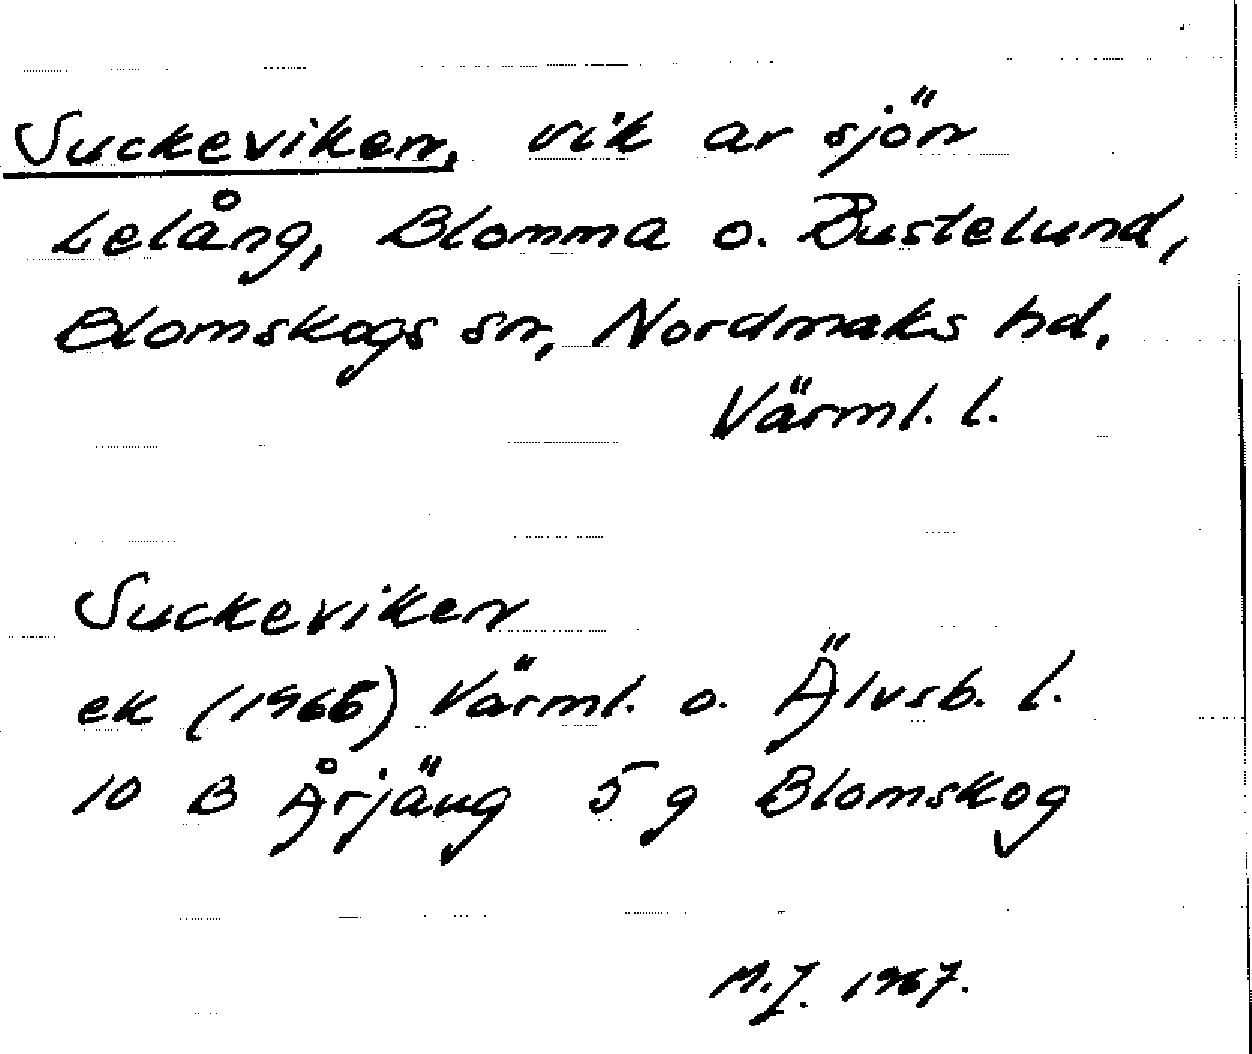 Suckeviken, vik av sjön
Lelång, Blomma o. Bustelund,
Blomskogs sn, Nordmaks hd,
Värml. l.
Suckeviken
ek (1966) Värml. o. Älvsb. l.
10 B Årjäng 5 g Blomskog
M.J. 1967.